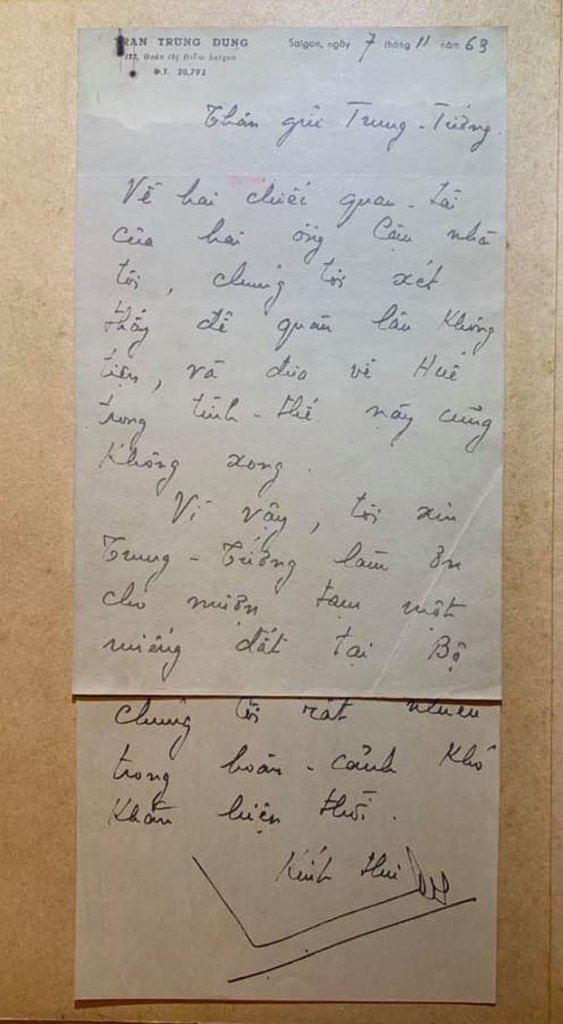 TRAN TRUNG DUNG
Saigon, ngày 7 tháng 11 năm 63
Đoàn thị Điểm Saigon
Đ.T. 20,792
Thân gửi Trung-Tướng
Về hai chiếc quan-tài
của hai ông Cậu nhà
tôi, chúng tôi xét
thấy để quàn lâu không
tiện, và đưa về Huế
trong tình-thế này cũng
không xong.
Vì vậy, tôi xin
Trung-Tướng làm ơn
cho mượn tạm một
miếng đất tại Bộ
chúng tôi rất nhiều
trong hoàn-cảnh khó
khăn hiện thời.
Kính thư